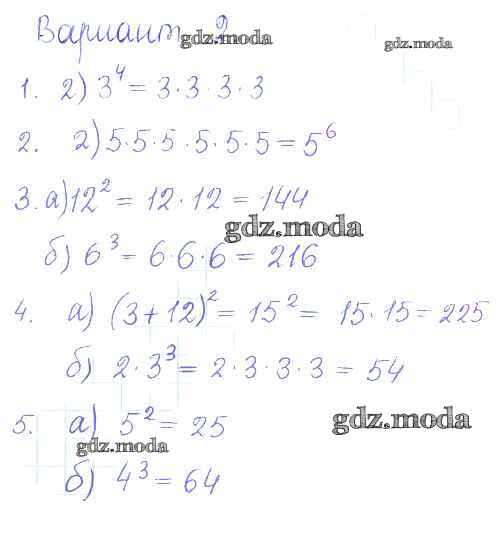 Вариант 2 gdz.moda
gdz.moda
1. 2) 3⁴ = 3·3·3·3
2. 2) 5·5·5·5·5·5 = 5⁶
3. а) 12² = 12·12 = 144
gdz.moda
б) 6³ = 6·6·6 = 216
4. а) (3+12)² = 15² = 15·15 = 225
б) 2·3³ = 2·3·3·3 = 54
5. а) 5² = 25
gdz.moda
gdz.moda
б) 4³ = 64